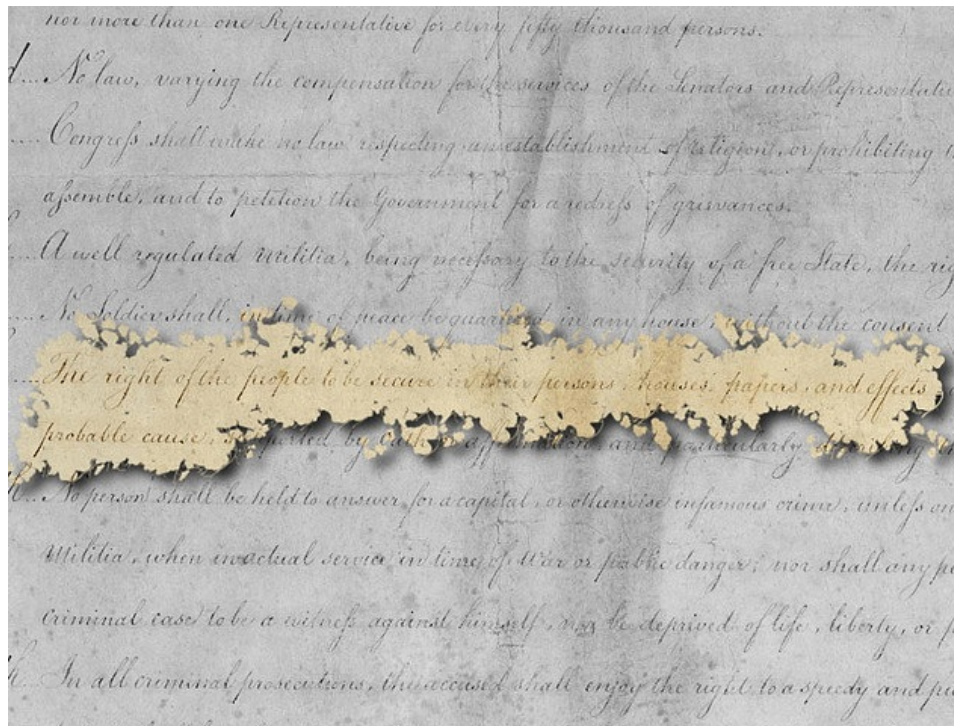 nor more than one Representative for every fifty thousand persons.
No law, varying the compensation for the services of the Senators and
Congreſs shall make no law respecting an establishment of religion, or prohibiting
aſsemble, and to petition the Government for a redreſs of grievances.
A well regulated militia, being neceſsary to the security of a free State, the
No Soldier shall, in time of peace be quartered in any house, without the consent
The right of the people to be secure in their persons, houses, papers, and effects
probable cause, supported by Oath or affirmation, and particularly describing
No person shall be held to answer for a capital, or otherwise infamous crime, unleſs on
Militia, when in actual service in time of War or public danger; nor shall any
criminal case to be a witneſs against himself, nor be deprived of life, liberty, or
In all criminal prosecutions, the accused shall enjoy the right to a speedy and